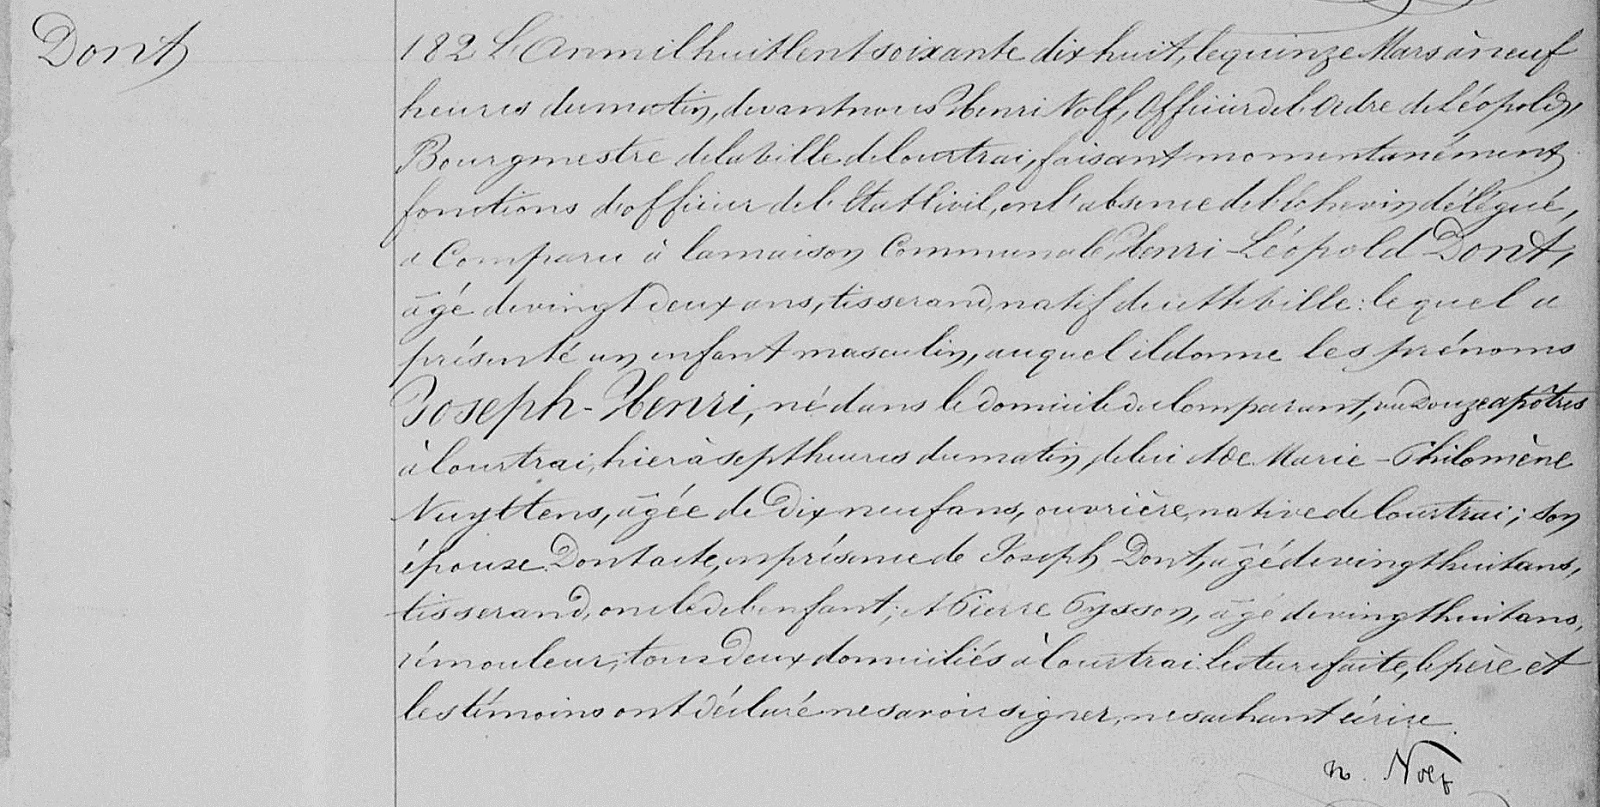 Dont
182 L'An mil huit Cent soixante dix huit, le quinze Mars à neuf
heures du matin, devant nous Henri Nolf, Officier de l'Ordre de Léopold,
Bourgmestre de la Ville de Courtrai, faisant momentanément
fonctions d'officier de l'Etat Civil, en l'absence de l'échevin délégué,
a Comparu à la maison Communale, Henri-Léopold Dont,
âgé de vingt deux ans, tisserand, natif de cette ville: lequel a
présenté un enfant masculin, auquel il donne les prénoms
Joseph-Henri, né dans le domicile du Comparant, rue Douze apôtres
à Courtrai, hier à sept heures du matin, de lui et de Marie-Philomène
Nuyttens, âgée de dix neuf ans, ouvrière, native de Courtrai; son
épouse. Dont acte, en présence de Joseph Dont, âgé de vingt huit ans,
tisserand, oncle de l'enfant; et Pierre Tysson, âgé de vingt huit ans,
rémouleur, tous deux domiciliés à Courtrai. Lecture faite, le père et
les témoins ont déclaré ne savoir signer, ne sachant écrire.
H. Nolf